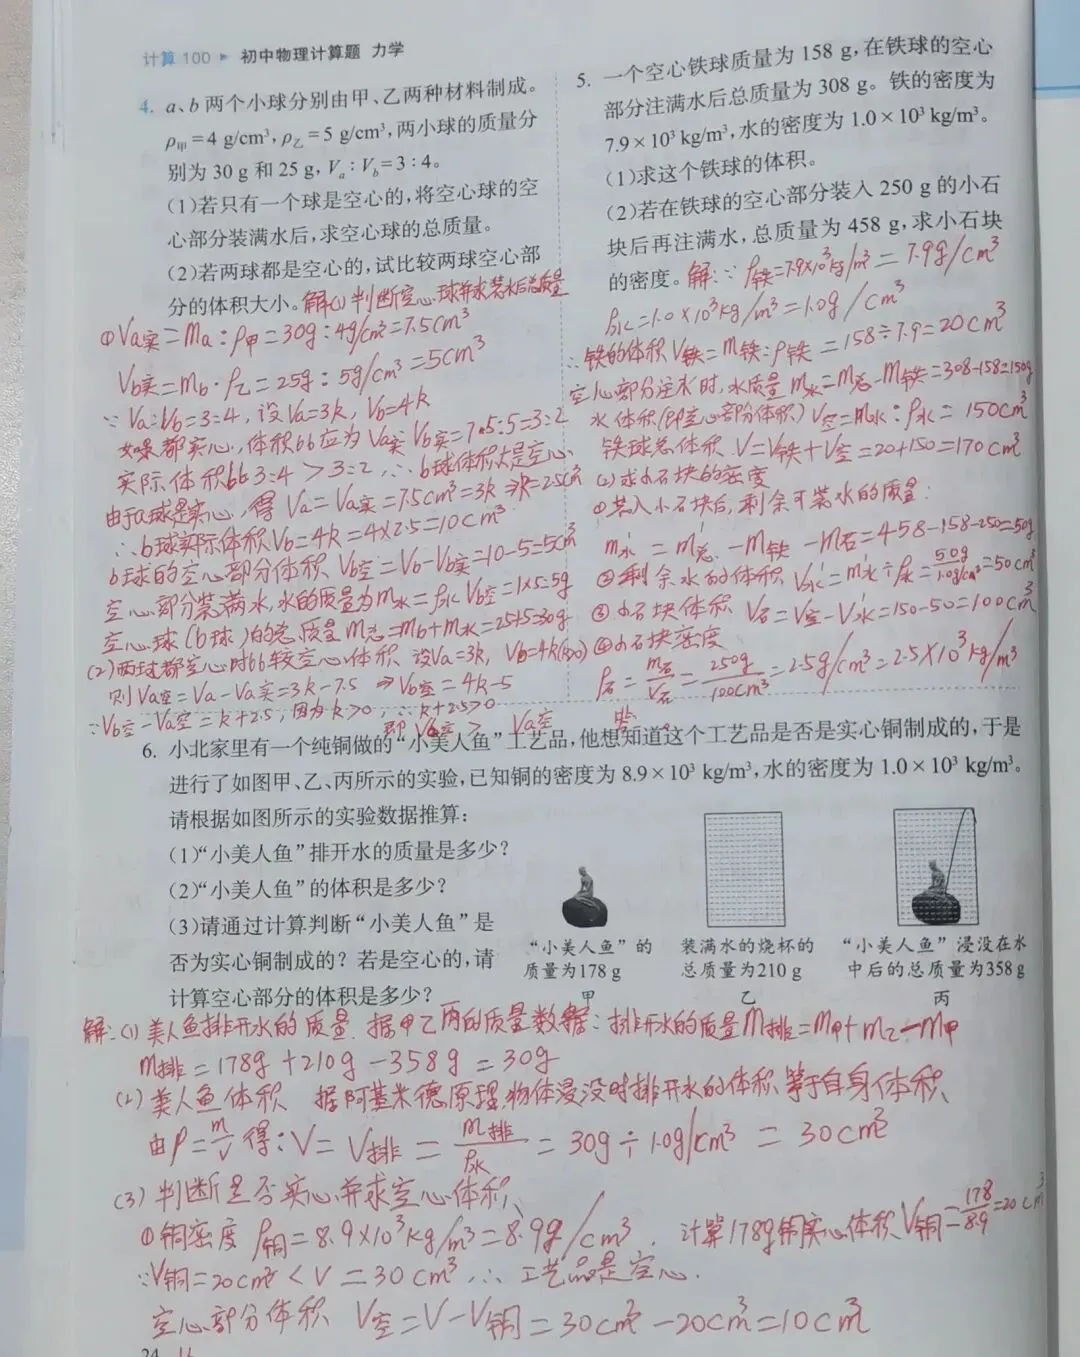 计算100 ▸ 初中物理计算题 力学
4. a、b两个小球分别由甲、乙两种材料制成。
ρ甲=4 g/cm³,ρ乙=5 g/cm³,两小球的质量分
别为30 g和25 g,Va∶Vb=3∶4。
(1)若只有一个球是空心的,将空心球的空
心部分装满水后,求空心球的总质量。
(2)若两球都是空心的,试比较两球空心部
分的体积大小。解(1)判断空心球并求装水后总质量
①Va实=ma:ρ甲=30g:4g/cm³=7.5cm³
Vb实=mb·ρ乙=25g:5g/cm³=5cm³
∵Va:Vb=3:4,设Va=3k,Vb=4k
如果都实心,体积比应为Va实:Vb实=7.5:5=3:2
实际体积比3:4>3:2,∴b球体积大是空心
由于a球是实心,得Va=Va实=7.5cm³=3k⇒k=2.5cm³
∴b球实际体积Vb=4k=4×2.5=10cm³
b球的空心部分体积Vb空=Vb-Vb实=10-5=5cm³
空心部分装满水,水的质量为m水=ρ水Vb空=1×5=5g
空心球(b球)的总质量m总=mb+m水=25+5=30g
(2)两球都空心时比较空心体积 设Va=3k,Vb=4k(k>0)
则Va空=Va-Va实=3k-7.5 ⇒Vb空=4k-5
∵Vb空-Va空=k+2.5,因为k>0,∴k+2.5>0
即Vb空>Va空
5. 一个空心铁球质量为158 g,在铁球的空心
部分注满水后总质量为308 g。铁的密度为
7.9×10³ kg/m³,水的密度为1.0×10³ kg/m³。
(1)求这个铁球的体积。
(2)若在铁球的空心部分装入250 g的小石
块后再注满水,总质量为458 g,求小石块
的密度。解:∵ρ铁=7.9×10³kg/m³=7.9g/cm³
ρ水=1.0×10³kg/m³=1.0g/cm³
∴铁的体积V铁=m铁:ρ铁=158÷7.9=20cm³
空心部分注水时,水质量m水=m总-m铁=308-158=150g
水体积(即空心部分体积)V空=m水:ρ水=150cm³
铁球总体积V=V铁+V空=20+150=170cm³
(2)求小石块的密度
①装入小石块后,剩余可装水的质量:
m水′=m总′-m铁-m石=458-158-250=50g
②剩余水的体积V水′=m水′÷ρ水=50g/1.0g/cm³=50cm³
③小石块体积V石=V空-V水′=150-50=100cm³
④小石块密度
ρ石=m石/V石=250g/100cm³=2.5g/cm³=2.5×10³kg/m³
6. 小北家里有一个纯铜做的“小美人鱼”工艺品,他想知道这个工艺品是否是实心铜制成的,于是
进行了如图甲、乙、丙所示的实验,已知铜的密度为8.9×10³ kg/m³,水的密度为1.0×10³ kg/m³。
请根据如图所示的实验数据推算:
(1)“小美人鱼”排开水的质量是多少?
(2)“小美人鱼”的体积是多少?
(3)请通过计算判断“小美人鱼”是
否为实心铜制成的?若是空心的,请
计算空心部分的体积是多少?
“小美人鱼”的
质量为178 g
甲
装满水的烧杯的
总质量为210 g
乙
“小美人鱼”浸没在水
中后的总质量为358 g
丙
解:(1)美人鱼排开水的质量.据甲乙丙的质量数据:排开水的质量m排=m甲+m乙-m甲
m排=178g+210g-358g=30g
(2)美人鱼体积 据阿基米德原理,物体浸没时排开水的体积等于自身体积,
由ρ=m/v得:V=V排=m排/ρ水=30g÷1.0g/cm³=30cm³
(3)判断是否实心并求空心体积
①铜密度ρ铜=8.9×10³kg/m³=8.9g/cm³,计算178g铜实心体积V铜=178/8.9=20cm³
∵V铜=20cm³<V=30cm³,∴工艺品是空心.
空心部分体积V空=V-V铜=30cm³-20cm³=10cm³